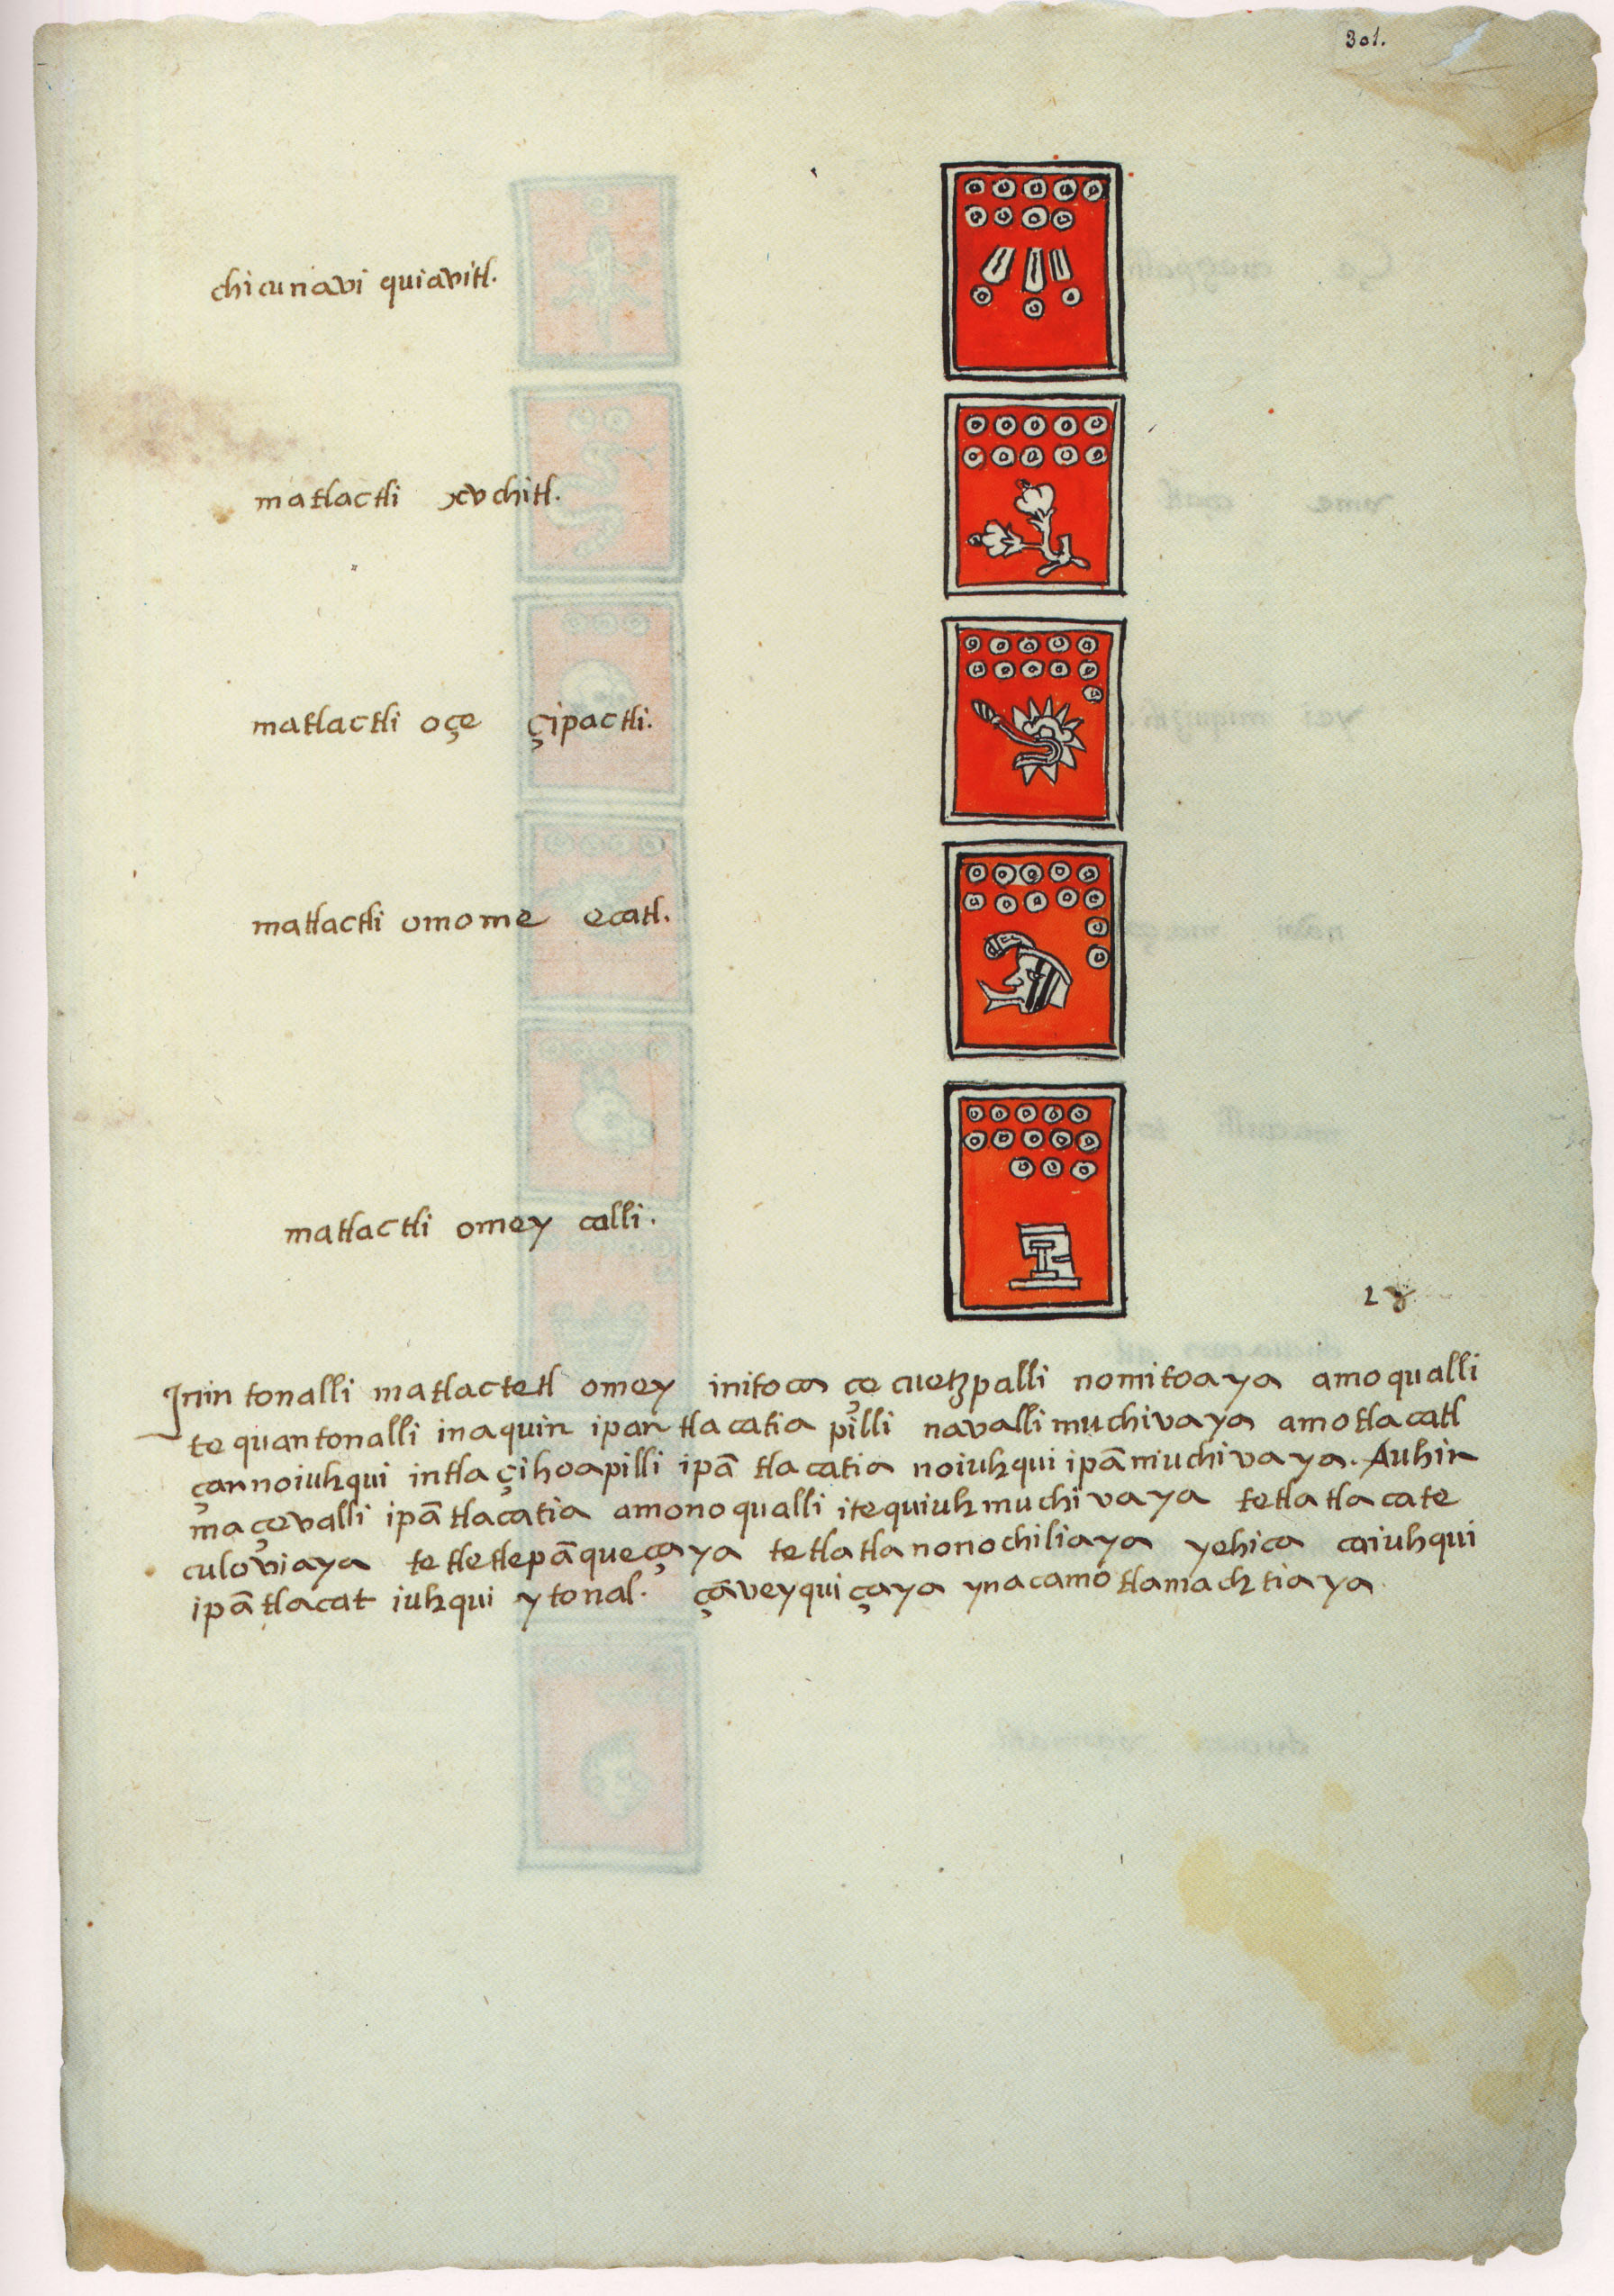 301.
chicunavi quiavitl.
matlactli xvchitl.
matlactli oçe çipactli.
matlactli omome ecatl.
matlactli omey calli.
Inin tonalli matlactetl omey initoca çe cuetzpalli nomitoaya amoqualli
te quantonalli inaquin ipan tlacatia pilli navalli muchivaya amotlacatl
çannoiuhqui intla çihoapilli ipā tlacatia noiuhqui ipā muchivaya. Auhin
maçevalli ipā tlacatia amonoqualli itequiuh muchivaya tetlatlacate
culoviaya tetletlepāqueçaya tetlatlanonochiliaya yehica caiuhqui
ipā tlacat iuhqui ytonal. çāveyquiçaya ynacamo tlamachtiaya.